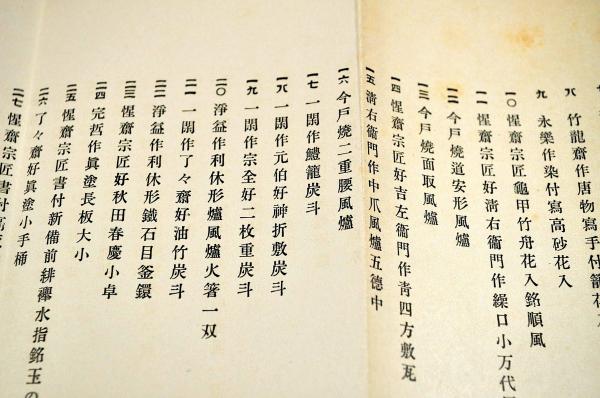 八 竹龍齋作唐物寫手付籠花入
九 永樂作染付寫高砂花入
一〇 惺齋宗匠龜甲竹舟花入銘順風
一一 惺齋宗匠好淸右衞門作繰口小万代
一二 今戶燒道安形風爐
一三 今戶燒面取風爐
一四 惺齋宗匠好吉左衞門作靑四方敷瓦
一五 淸右衞門作中爪風爐五德中
一六 今戶燒二重腰風爐
一七 一閑作鱧籠炭斗
一八 一閑作元伯好神折敷炭斗
一九 一閑作宗全好二枚重炭斗
二〇 淨益作利休形爐風爐火箸一双
二一 一閑作了々齋好油竹炭斗
二二 淨益作利休形鐵石目釜鐶
二三 惺齋宗匠好秋田春慶小卓
二四 完哲作眞塗長板大小
二五 惺齋宗匠書付新備前緋襷水指銘玉の
二六 了々齋好眞塗小手桶
二七 惺齋宗匠書付高